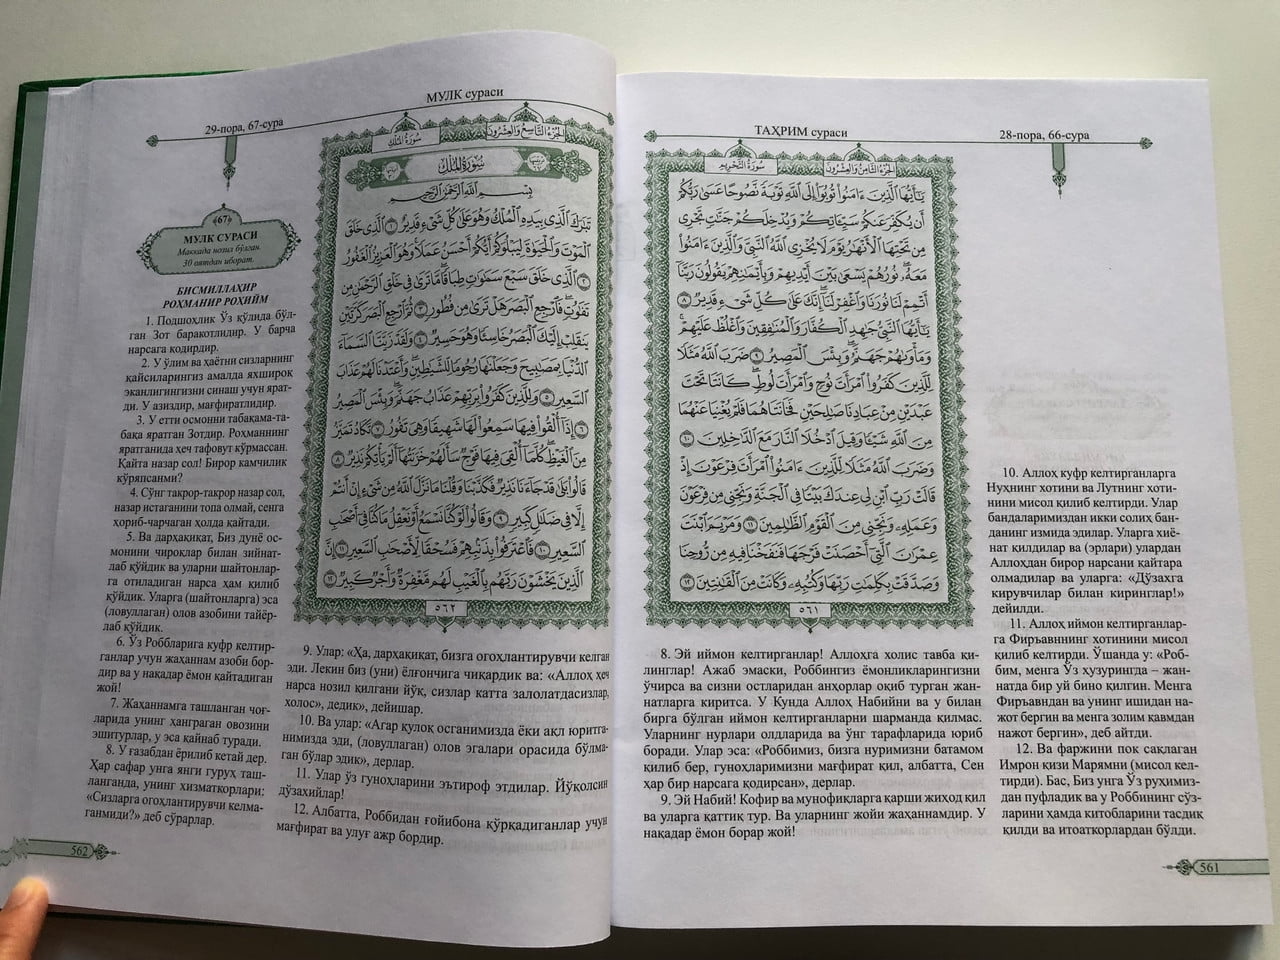 ТАҲРИМ сураси
28-пора, 66-сура
سُورَةُ التَّحْرِيمِ
الجُزْءُ الثَّامِنُ وَالعِشْرُونَ
يَٰٓأَيُّهَا ٱلَّذِينَ ءَامَنُوا۟ تُوبُوٓا۟ إِلَى ٱللَّهِ تَوْبَةً نَّصُوحًا عَسَىٰ رَبُّكُمْ
أَن يُكَفِّرَ عَنكُمْ سَيِّـَٔاتِكُمْ وَيُدْخِلَكُمْ جَنَّٰتٍ تَجْرِى
مِن تَحْتِهَا ٱلْأَنْهَٰرُ يَوْمَ لَا يُخْزِى ٱللَّهُ ٱلنَّبِىَّ وَٱلَّذِينَ ءَامَنُوا۟
مَعَهُۥ ۖ نُورُهُمْ يَسْعَىٰ بَيْنَ أَيْدِيهِمْ وَبِأَيْمَٰنِهِمْ يَقُولُونَ رَبَّنَآ
أَتْمِمْ لَنَا نُورَنَا وَٱغْفِرْ لَنَآ ۖ إِنَّكَ عَلَىٰ كُلِّ شَىْءٍ قَدِيرٌ ٨
يَٰٓأَيُّهَا ٱلنَّبِىُّ جَٰهِدِ ٱلْكُفَّارَ وَٱلْمُنَٰفِقِينَ وَٱغْلُظْ عَلَيْهِمْ ۚ
وَمَأْوَىٰهُمْ جَهَنَّمُ ۖ وَبِئْسَ ٱلْمَصِيرُ ٩ ضَرَبَ ٱللَّهُ مَثَلًا
لِّلَّذِينَ كَفَرُوا۟ ٱمْرَأَتَ نُوحٍ وَٱمْرَأَتَ لُوطٍ ۖ كَانَتَا تَحْتَ
عَبْدَيْنِ مِنْ عِبَادِنَا صَٰلِحَيْنِ فَخَانَتَاهُمَا فَلَمْ يُغْنِيَا عَنْهُمَا
مِنَ ٱللَّهِ شَيْـًٔا وَقِيلَ ٱدْخُلَا ٱلنَّارَ مَعَ ٱلدَّٰخِلِينَ ١٠
وَضَرَبَ ٱللَّهُ مَثَلًا لِّلَّذِينَ ءَامَنُوا۟ ٱمْرَأَتَ فِرْعَوْنَ إِذْ
قَالَتْ رَبِّ ٱبْنِ لِى عِندَكَ بَيْتًا فِى ٱلْجَنَّةِ وَنَجِّنِى مِن فِرْعَوْنَ
وَعَمَلِهِۦ وَنَجِّنِى مِنَ ٱلْقَوْمِ ٱلظَّٰلِمِينَ ١١ وَمَرْيَمَ ٱبْنَتَ
عِمْرَٰنَ ٱلَّتِىٓ أَحْصَنَتْ فَرْجَهَا فَنَفَخْنَا فِيهِ مِن رُّوحِنَا
وَصَدَّقَتْ بِكَلِمَٰتِ رَبِّهَا وَكُتُبِهِۦ وَكَانَتْ مِنَ ٱلْقَٰنِتِينَ ١٢
٥٦١
8. Эй иймон келтирганлар! Аллоҳга холис тавба қи-
линглар! Ажаб эмаски, Роббингиз ёмонликларингизни
ўчирса ва сизни остларидан анҳорлар оқиб турган жан-
натларга киритса. У Кунда Аллоҳ Набийни ва у билан
бирга бўлган иймон келтирганларни шарманда қилмас.
Уларнинг нурлари олдларида ва ўнг тарафларида юриб
боради. Улар эса: «Роббимиз, бизга нуримизни батамом
қилиб бер, гуноҳларимизни мағфират қил, албатта, Сен
ҳар бир нарсага қодирсан», дерлар.
9. Эй Набий! Кофир ва мунофиқларга қарши жиҳод қил
ва уларга қаттиқ тур. Ва уларнинг жойи жаҳаннамдир. У
нақадар ёмон борар жой!
10. Аллоҳ куфр келтирганларга
Нуҳнинг хотини ва Лутнинг хоти-
нини мисол қилиб келтирди. Улар
бандаларимиздан икки солиҳ бан-
данинг измида эдилар. Уларга хиё-
нат қилдилар ва (эрлари) улардан
Аллоҳдан бирор нарсани қайтара
олмадилар ва уларга: «Дўзахга
кирувчилар билан киринглар!»
дейилди.
11. Аллоҳ иймон келтирганлар-
га Фиръавннинг хотинини мисол
қилиб келтирди. Ўшанда у: «Роб-
бим, менга Ўз ҳузурингда – жан-
натда бир уй бино қилгин. Менга
Фиръавндан ва унинг ишидан на-
жот бергин ва менга золим қавмдан
нажот бергин», деб айтди.
12. Ва фаржини пок сақлаган
Имрон қизи Марямни (мисол кел-
тирди). Бас, Биз унга Ўз руҳимиз-
дан пуфладик ва у Роббининг сўз-
ларини ҳамда китобларини тасдиқ
қилди ва итоаткорлардан бўлди.
561
МУЛК сураси
29-пора, 67-сура
سُورَةُ المُلْكِ
الجُزْءُ التَّاسِعُ وَالعِشْرُونَ
سُورَةُ المُلْكِ
بِسْمِ ٱللَّهِ ٱلرَّحْمَٰنِ ٱلرَّحِيمِ
تَبَٰرَكَ ٱلَّذِى بِيَدِهِ ٱلْمُلْكُ وَهُوَ عَلَىٰ كُلِّ شَىْءٍ قَدِيرٌ ١ ٱلَّذِى خَلَقَ
ٱلْمَوْتَ وَٱلْحَيَوٰةَ لِيَبْلُوَكُمْ أَيُّكُمْ أَحْسَنُ عَمَلًا ۚ وَهُوَ ٱلْعَزِيزُ ٱلْغَفُورُ
٢ ٱلَّذِى خَلَقَ سَبْعَ سَمَٰوَٰتٍ طِبَاقًا ۖ مَّا تَرَىٰ فِى خَلْقِ ٱلرَّحْمَٰنِ مِن
تَفَٰوُتٍ ۖ فَٱرْجِعِ ٱلْبَصَرَ هَلْ تَرَىٰ مِن فُطُورٍ ٣ ثُمَّ ٱرْجِعِ ٱلْبَصَرَ كَرَّتَيْنِ
يَنقَلِبْ إِلَيْكَ ٱلْبَصَرُ خَاسِئًا وَهُوَ حَسِيرٌ ٤ وَلَقَدْ زَيَّنَّا ٱلسَّمَآءَ
ٱلدُّنْيَا بِمَصَٰبِيحَ وَجَعَلْنَٰهَا رُجُومًا لِّلشَّيَٰطِينِ ۖ وَأَعْتَدْنَا لَهُمْ عَذَابَ
ٱلسَّعِيرِ ٥ وَلِلَّذِينَ كَفَرُوا۟ بِرَبِّهِمْ عَذَابُ جَهَنَّمَ ۖ وَبِئْسَ ٱلْمَصِيرُ
٦ إِذَآ أُلْقُوا۟ فِيهَا سَمِعُوا۟ لَهَا شَهِيقًا وَهِىَ تَفُورُ ٧ تَكَادُ تَمَيَّزُ
مِنَ ٱلْغَيْظِ ۖ كُلَّمَآ أُلْقِىَ فِيهَا فَوْجٌ سَأَلَهُمْ خَزَنَتُهَآ أَلَمْ يَأْتِكُمْ نَذِيرٌ ٨
قَالُوا۟ بَلَىٰ قَدْ جَآءَنَا نَذِيرٌ فَكَذَّبْنَا وَقُلْنَا مَا نَزَّلَ ٱللَّهُ مِن شَىْءٍ إِنْ أَنتُمْ
إِلَّا فِى ضَلَٰلٍ كَبِيرٍ ٩ وَقَالُوا۟ لَوْ كُنَّا نَسْمَعُ أَوْ نَعْقِلُ مَا كُنَّا فِىٓ أَصْحَٰبِ
ٱلسَّعِيرِ ١٠ فَٱعْتَرَفُوا۟ بِذَنۢبِهِمْ فَسُحْقًا لِّأَصْحَٰبِ ٱلسَّعِيرِ ١١ إِنَّ
ٱلَّذِينَ يَخْشَوْنَ رَبَّهُم بِٱلْغَيْبِ لَهُم مَّغْفِرَةٌ وَأَجْرٌ كَبِيرٌ ١٢
٥٦٢
67
МУЛК СУРАСИ
Маккада нозил бўлган.
30 оятдан иборат.
БИСМИЛЛАҲИР
РОҲМАНИР РОҲИЙМ
1. Подшоҳлик Ўз қўлида бўл-
ган Зот баракотлидир. У барча
нарсага қодирдир.
2. У ўлим ва ҳаётни сизларнинг
қайсиларингиз амалда яхшироқ
эканлигингизни синаш учун ярат-
ди. У азиздир, мағфиратлидир.
3. У етти осмонни табақама-та-
бақа яратган Зотдир. Роҳманнинг
яратганида ҳеч тафовут кўрмассан.
Қайта назар сол! Бирор камчилик
кўряпсанми?
4. Сўнг такрор-такрор назар сол,
назар истаганини топа олмай, сенга
ҳориб-чарчаган ҳолда қайтади.
5. Ва дарҳақиқат, Биз дунё ос-
монини чироқлар билан зийнат-
лаб қўйдик ва уларни шайтонлар-
га отиладиган нарса ҳам қилиб
қўйдик. Уларга (шайтонларга) эса
(ловуллаган) олов азобини тайёр-
лаб қўйдик.
6. Ўз Роббларига куфр келтир-
ганлар учун жаҳаннам азоби бор-
дир ва у нақадар ёмон қайтадиган
жой!
7. Жаҳаннамга ташланган чоғ-
ларида унинг ҳанграган овозини
эшитурлар, у эса қайнаб туради.
8. У ғазабдан ёрилиб кетай дер.
Ҳар сафар унга янги гуруҳ таш-
ланганда, унинг хизматкорлари:
«Сизларга огоҳлантирувчи келма-
ганмиди?» деб сўрарлар.
9. Улар: «Ҳа, дарҳақиқат, бизга огоҳлантирувчи келган
эди. Лекин биз (уни) ёлғончига чиқардик ва: «Аллоҳ ҳеч
нарса нозил қилгани йўқ, сизлар катта залолатдасизлар,
холос», дедик», дейишар.
10. Ва улар: «Агар қулоқ осганимизда ёки ақл юритга-
нимизда эди, (ловуллаган) олов эгалари орасида бўлма-
ган бўлар эдик», дерлар.
11. Улар ўз гуноҳларини эътироф этдилар. Йўқолсин
дўзахийлар!
12. Албатта, Роббидан ғойибона қўрқадиганлар учун
мағфират ва улуғ ажр бордир.
562